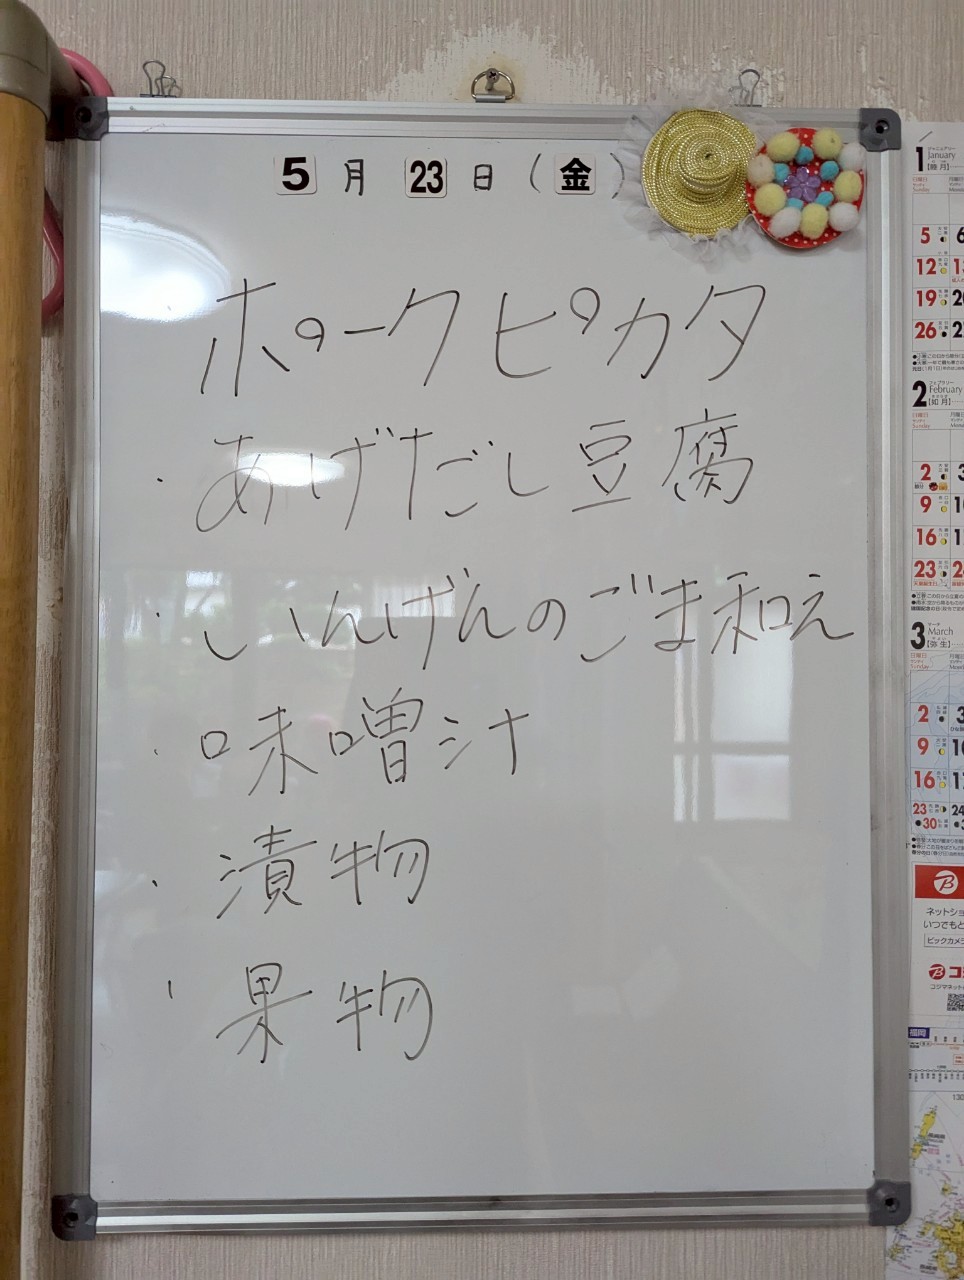 5月23日(金)
ポークピカタ
・あげだし豆腐
・いんげんのごま和え
・味噌汁
・漬物
・果物
1
January
【睦月】
日曜日
Sunday
5 6
12
19
26
2
February
【如月】
日曜日
Sunday
2
9
16
23
3
March
【弥生】
日曜日
Sunday
2
9
16
23 24
30
ネットショ
いつでもと
ビックカメラ
福岡